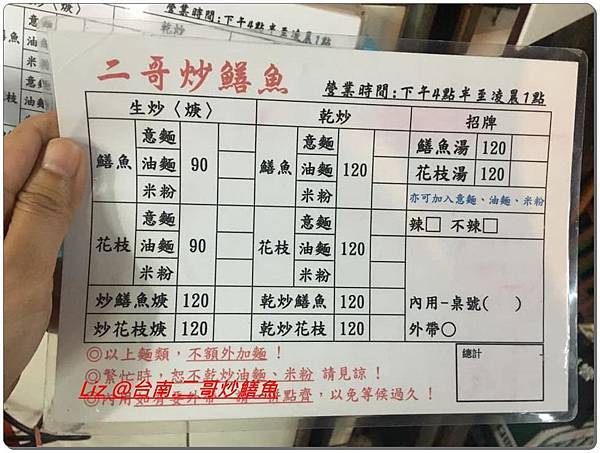 二哥炒鱔魚
營業時間:下午4點半至凌晨1點
生炒〈焿〉 乾炒 招牌
鱔魚 意麵 油麵 米粉 90 鱔魚 意麵 油麵 米粉 120 鱔魚湯 120
花枝湯 120
亦可加入意麵、油麵、米粉
花枝 意麵 油麵 米粉 90 花枝 意麵 油麵 米粉 120 辣□ 不辣□
炒鱔魚焿 120 乾炒鱔魚 120 內用-桌號( )
炒花枝焿 120 乾炒花枝 120 外帶○
總計
◎以上麵類,不額外加麵!
◎繁忙時,恕不乾炒油麵、米粉 請見諒!
◎內用如有要外帶 請 點齊,以免等候過久!
Liz @台南 二哥炒鱔魚